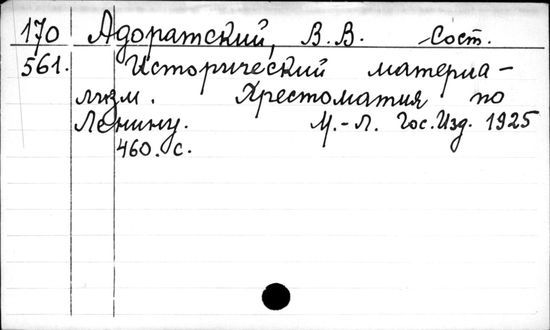 170 Адоратский, В.В. Сост.
561. Исторический материа-
лизм. Хрестоматия по
Ленину. М.-Л. Гос.Изд. 1925
460. с.